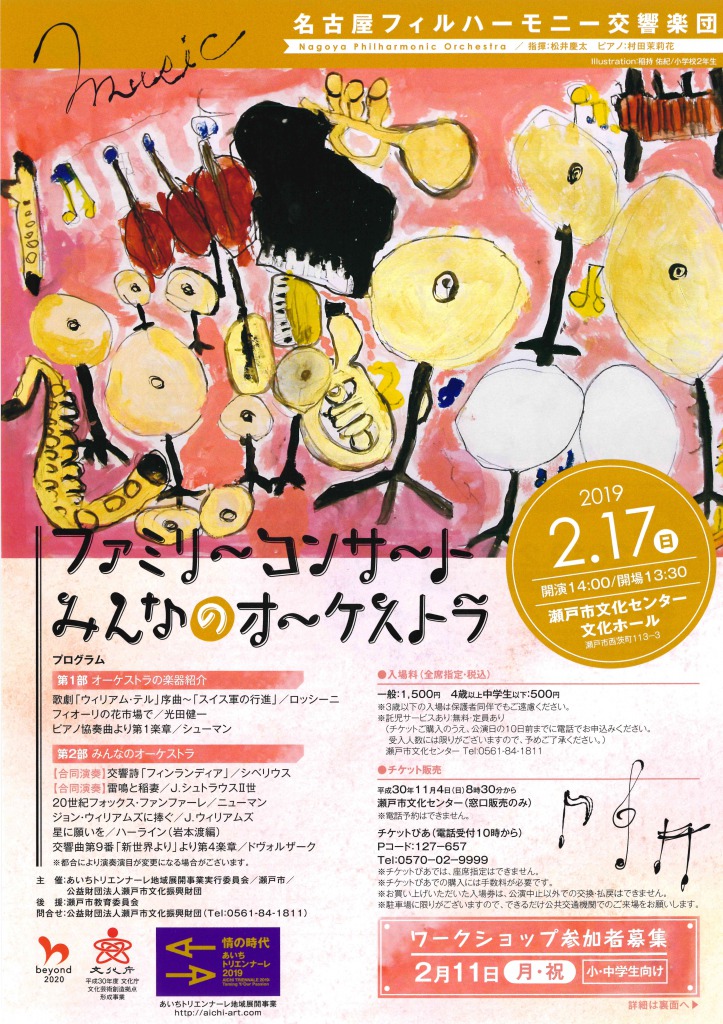 music
名古屋フィルハーモニー交響楽団
Nagoya Philharmonic Orchestra ／ 指揮:松井慶太 ピアノ:村田茉莉花
Illustration:稲持 佑紀/小学校2年生
2019
2.17日
開演14:00/開場13:30
瀬戸市文化センター
文化ホール
瀬戸市西茨町113-3
ファミリーコンサート
みんなのオーケストラ
プログラム
第1部 オーケストラの楽器紹介
歌劇「ウィリアム・テル」序曲〜「スイス軍の行進」／ロッシーニ
フィオーリの花市場で／光田健一
ピアノ協奏曲より第1楽章／シューマン
第2部 みんなのオーケストラ
【合同演奏】交響詩「フィンランディア」／シベリウス
【合同演奏】雷鳴と稲妻／J.シュトラウスⅡ世
20世紀フォックス・ファンファーレ／ニューマン
ジョン・ウィリアムズに捧ぐ／J.ウィリアムズ
星に願いを／ハーライン（岩本渡編）
交響曲第9番「新世界より」より第4楽章／ドヴォルザーク
※都合により演奏演目が変更になる場合がございます。
主 催:あいちトリエンナーレ地域展開事業実行委員会／瀬戸市／
公益財団法人瀬戸市文化振興財団
後 援:瀬戸市教育委員会
問合せ:公益財団法人瀬戸市文化振興財団（Tel:0561-84-1811）
beyond
2020
文化庁
平成30年度 文化庁
文化芸術創造拠点
形成事業
情の時代
あいち
トリエンナーレ
2019
AICHI TRIENNALE 2019:
Taming Y/Our Passion
あいちトリエンナーレ地域展開事業
http://aichi-art.com
●入場料（全席指定・税込）
一般:1,500円 4歳以上中学生以下:500円
※3歳以下の入場は保護者同伴でもご遠慮ください。
※託児サービスあり:無料・定員あり
（チケットご購入のうえ、公演日の10日前までに電話でお申込みください。
受入人数には限りがございますので、予めご了承ください。）
瀬戸市文化センター Tel:0561-84-1811
●チケット販売
平成30年11月4日（日）8時30分から
瀬戸市文化センター（窓口販売のみ）
※電話予約はできません。
チケットぴあ（電話受付10時から）
Pコード:127-657
Tel:0570-02-9999
※チケットぴあでは、座席指定はできません。
※チケットぴあでの購入には手数料が必要です。
※お買い上げいただいた入場券は、公演中止以外での交換・払戻はできません。
※駐車場に限りがございますので、できるだけ公共交通機関でのご来場をお願いします。
ワークショップ参加者募集
2月11日 月・祝 小・中学生向け
詳細は裏面へ▶